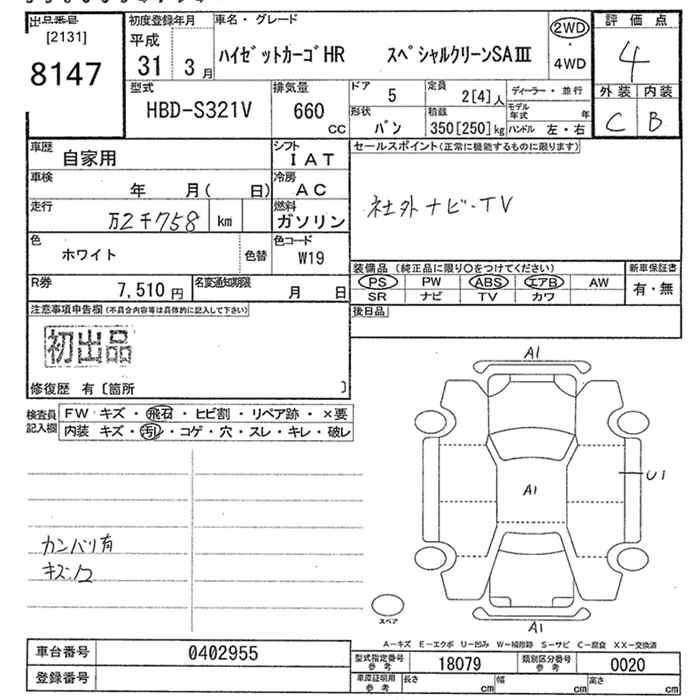 出品番号
[2131]
8147
初度登録年月
平成
31 3月
車名・グレード
ハイゼットカーゴHR スペシャルクリーンSAⅢ
2WD
・
4WD
評価点
4
外装 内装
C B
型式
HBD-S321V
排気量
660
CC
ドア
5
定員
2[4]人
ディーラー・並行
形状
バン
積載
350[250]kg
モデル年式 年
ハンドル 左・右
車歴
自家用
シフト
IAT
車検
年 月( 日)
冷房
AC
走行
万2千758 km
燃料
ガソリン
色
ホワイト
色替
色コード
W19
R券
7,510円
名変通知期限
月 日
セールスポイント(正常に機能するものに限ります)
社外ナビ・TV
装備品 (純正品に限り〇をつけてください)
新車保証書
PS PW ABS エアB AW
SR ナビ TV カワ
有・無
後日品
注意事項申告欄(不具合内容等は具体的に記入して下さい)
初出品
修復歴 有〔箇所 〕
検査員記入欄
FW キズ・飛石・ヒビ割・リペア跡・×要
内装 キズ・汚レ・コゲ・穴・スレ・キレ・破レ
カンバリ有
A1
A1
U1
A1
スペア
A−キズ E−エクボ U−凹み W−補修跡 S−サビ C−腐食 XX−交換済
車台番号
0402955
登録番号
型式指定番号
参考
18079
類別区分番号
参考
0020
車庫証明用
参考
長さ cm 幅 cm 高さ cm